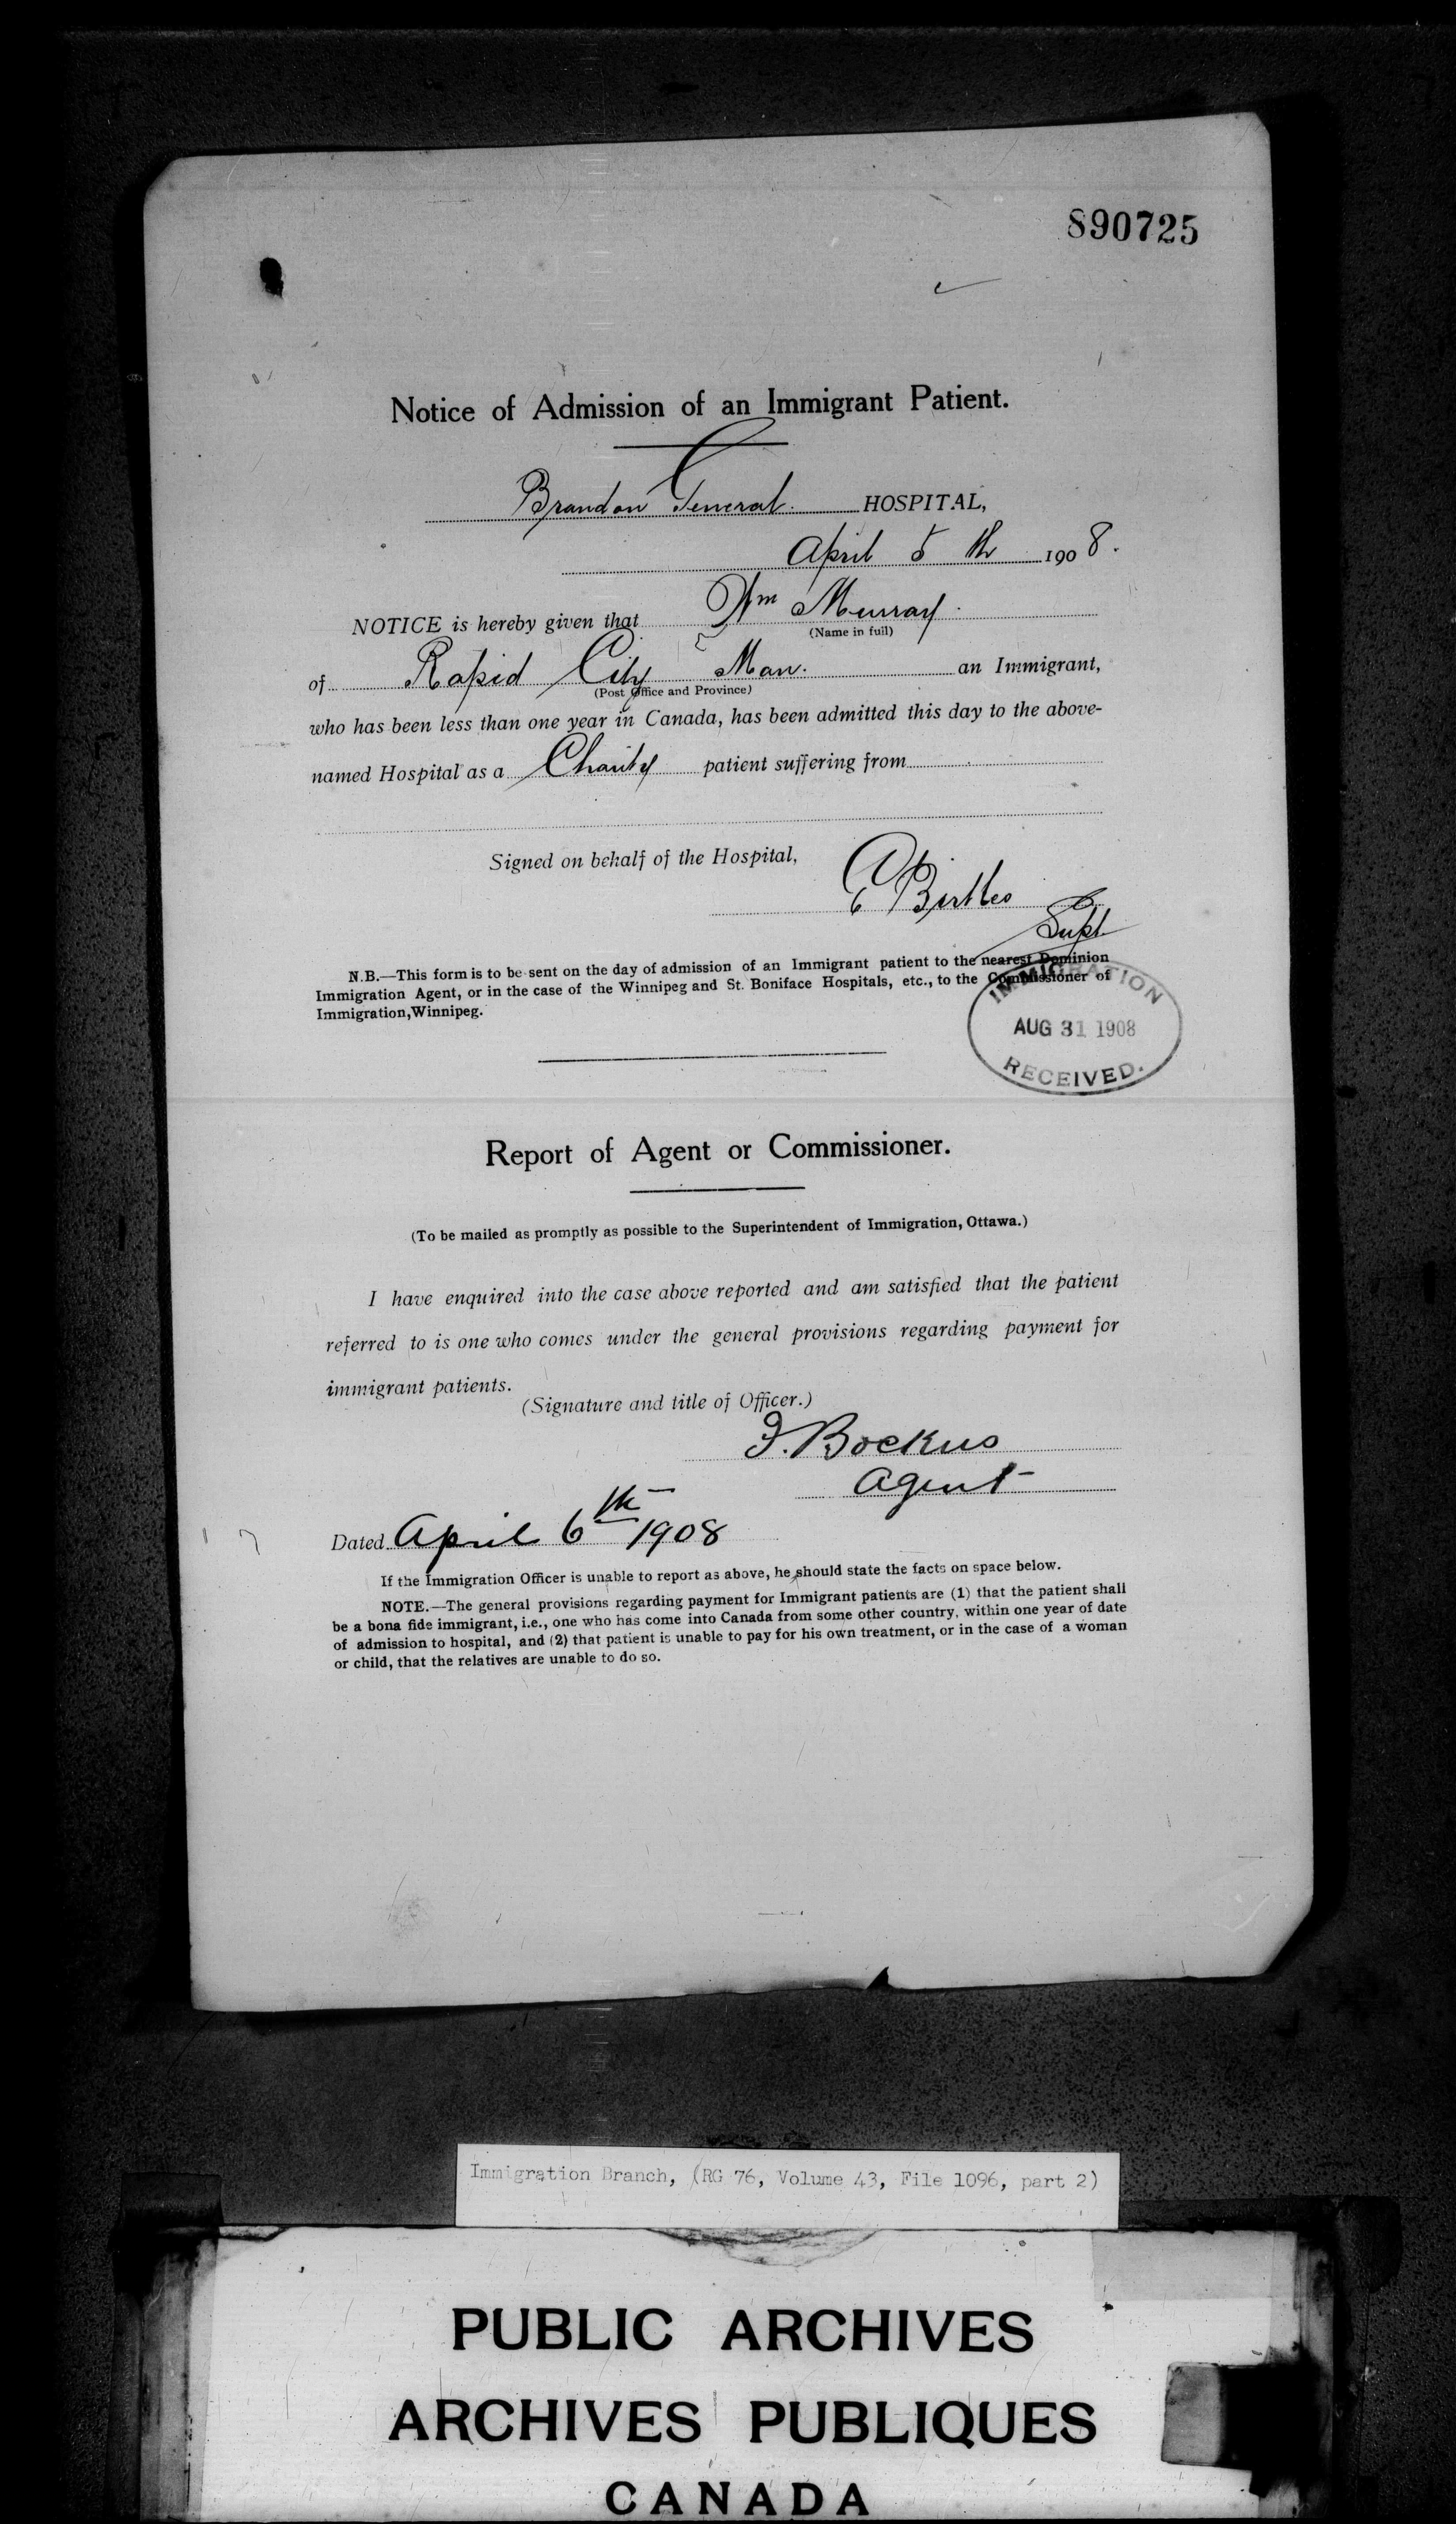 890725
Notice of Admission of an Immigrant Patient.
Brandon General HOSPITAL,
April 5th 1908.
NOTICE is hereby given that Wm Murray.
(Name in full)
of Rapid City Man. an Immigrant,
(Post Office and Province)
who has been less than one year in Canada, has been admitted this day to the above-
named Hospital as a Charity patient suffering from
Signed on behalf of the Hospital,
E Birtles
Supt
N.B.—This form is to be sent on the day of admission of an Immigrant patient to the nearest Dominion
Immigration Agent, or in the case of the Winnipeg and St. Boniface Hospitals, etc., to the Commissioner of
Immigration, Winnipeg.
IMMIGRATION
AUG 31 1908
RECEIVED.
Report of Agent or Commissioner.
(To be mailed as promptly as possible to the Superintendent of Immigration, Ottawa.)
I have enquired into the case above reported and am satisfied that the patient
referred to is one who comes under the general provisions regarding payment for
immigrant patients.
(Signature and title of Officer.)
F. Bockus
Agent
Dated April 6th 1908
If the Immigration Officer is unable to report as above, he should state the facts on space below.
NOTE.—The general provisions regarding payment for Immigrant patients are (1) that the patient shall
be a bona fide immigrant, i.e., one who has come into Canada from some other country, within one year of date
of admission to hospital, and (2) that patient is unable to pay for his own treatment, or in the case of a woman
or child, that the relatives are unable to do so.
Immigration Branch, (RG 76, Volume 43, File 1096, part 2)
PUBLIC ARCHIVES
ARCHIVES PUBLIQUES
CANADA